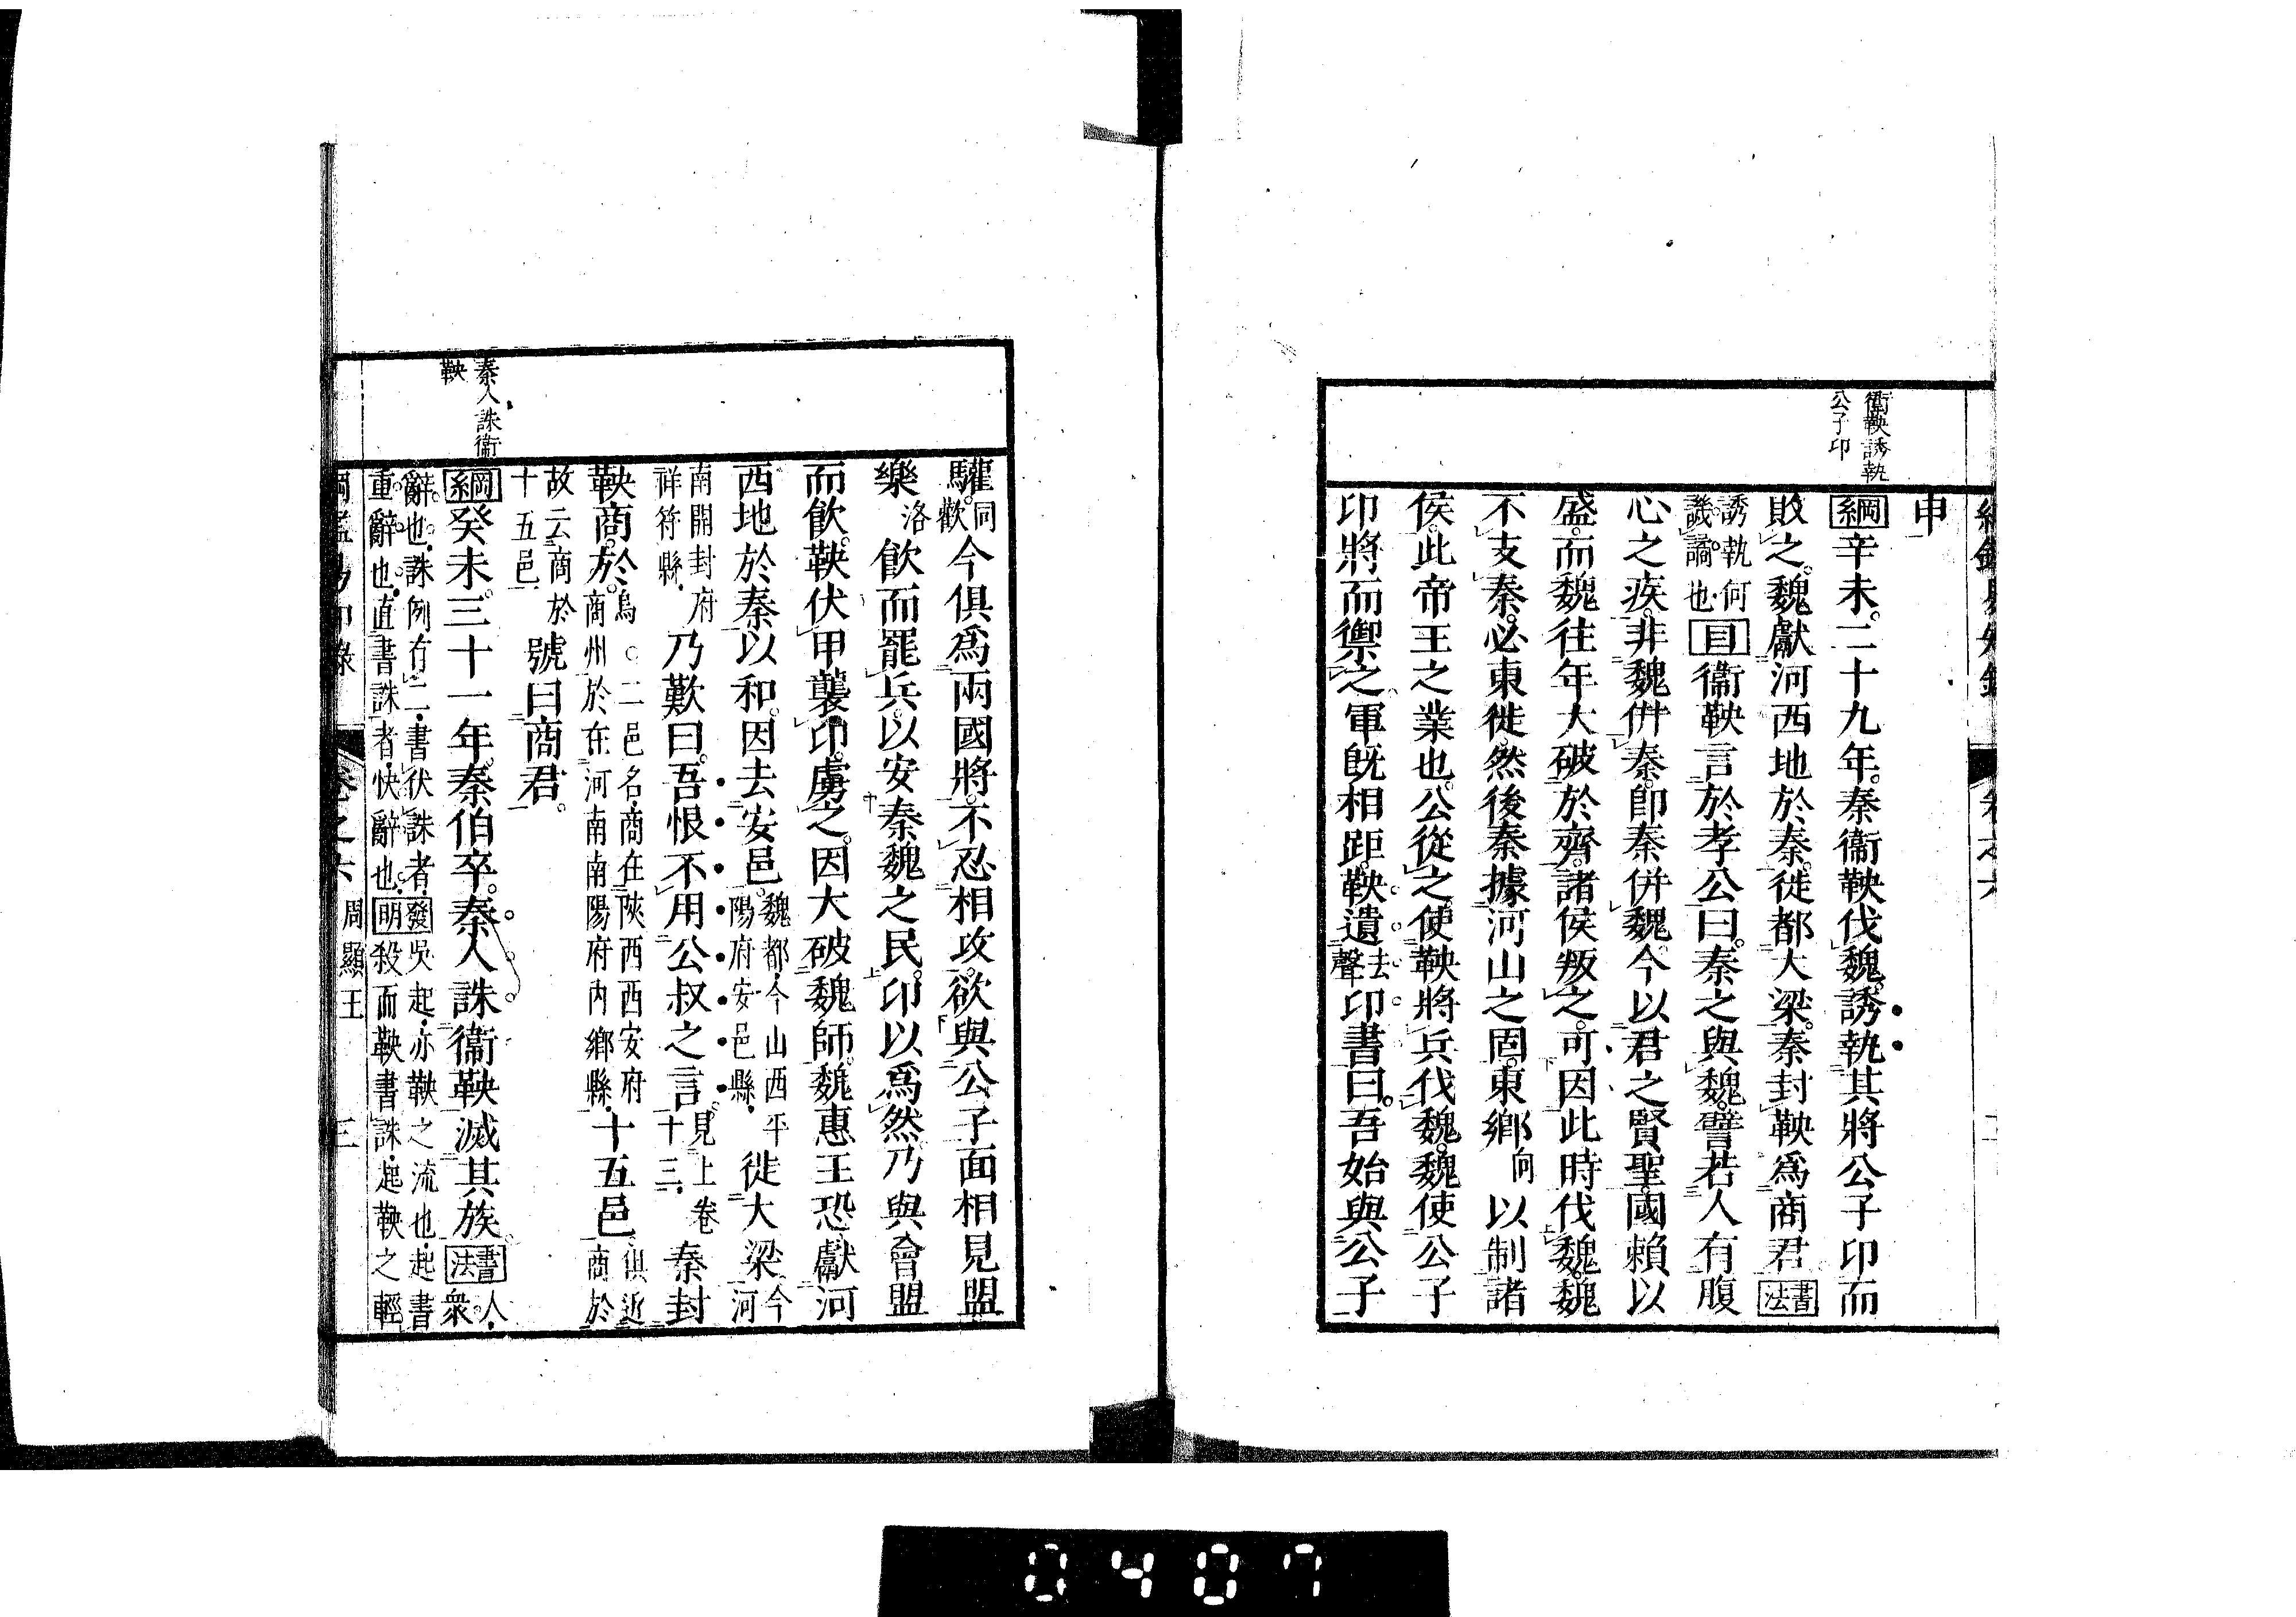 衞鞅誘執
公子卬
申
綱辛未。二十九年。秦衞鞅伐魏。誘執其將公子卬而
敗之。魏獻河西地於秦。徙都大梁。秦封鞅爲商君。書法
誘執何
譏譎也。目衞鞅言於孝公曰。秦之與魏。譬若人有腹
心之疾。非魏併秦。卽秦併魏。今以君之賢聖。國賴以
盛。而魏往年大破於齊。諸侯叛之。可因此時伐魏。魏
不支秦。必東徙。然後秦據河山之固。東鄉向以制諸
侯。此帝王之業也。公從之。使鞅將兵伐魏。魏使公子
卬將而禦之。軍旣相距。鞅遺去聲卬書曰。吾始與公子
驩同歡。今俱爲兩國將。不忍相攻。欲與公子面相見盟
樂洛。飮而罷兵。以安秦魏之民。卬以爲然。乃與會盟
而飮。鞅伏甲襲卬。虜之。因大破魏師。魏惠王恐。獻河
西地於秦以和。因去安邑。魏都。今山西平陽府安邑縣。徙大梁。今河
南開封府祥符縣。乃歎曰。吾恨不用公叔之言。見上卷十三。秦封
鞅商於烏。○二邑名。商在陝西西安府商州。於在河南南陽府內鄉縣。十五邑。俱近商於
故云商於十五邑。號曰商君。
秦人誅衞
鞅
綱癸未。三十一年。秦伯卒。秦人誅衞鞅。滅其族。書法人。衆
辭也。誅例有二。書伏誅者。
重辭也。直書誅者。快辭也。發明吳起。亦鞅之流也。起書殺而鞅書誅。起鞅之輕
卷之六 周顯王 三